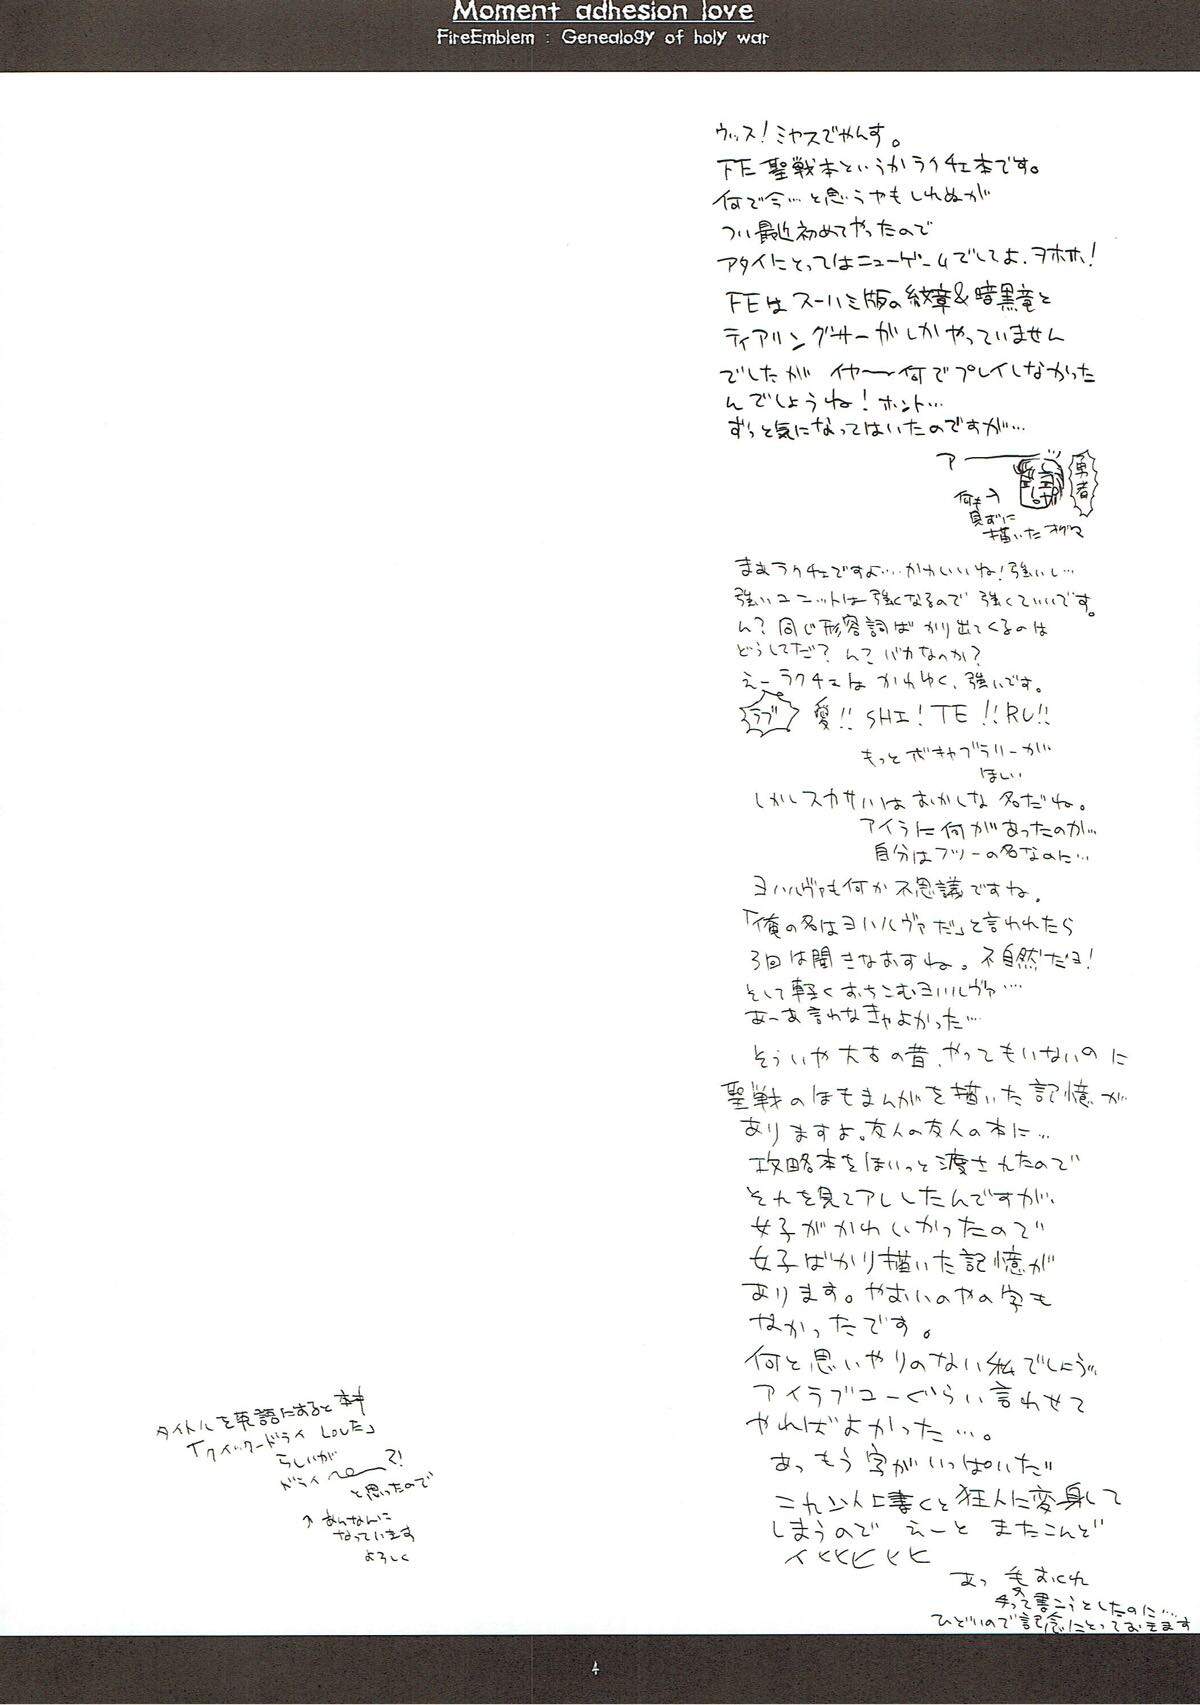 Moment adhesion love
FireEmblem : Genealogy of holy war
ウッス!ミヤスでやんす。
FE聖戦本というかラクチェ本です。
何で今…と思うやもしれぬが
つい最近初めてやったので
アタイにとってはニューゲームでしてよ、ヲホホ!
FEはスーハミ版の紋章&暗黒竜と
ティアリングサーガしかやっていません
でしたが イヤ〜何でプレイしなかった
んでしょうね!ホント…
ずっと気になってはいたのですが…
アー
勇者
何も
見ずに
描いたオグマ
まあラクチェですよ…かわいいね!強いし…
強いユニットは強くなるので強くていいです。
ん?同じ形容詞ばかり出てくるのは
どうしてだ?ん?バカなのか?
えーラクチェはかわゆく、強いです。
ラブ 愛!! SHI!TE!!RU!!
もっとボキャブラリーが
ほしい
しかしスカサハはおかしな名だね。
アイラに何があったのか…
自分はフツーの名なのに…
ヨハルヴァも何か不思議ですね。
「俺の名はヨハルヴァだ」と言われたら
3回は聞きなおすね。不自然だヨ!
そして軽くおちこむヨハルヴァ…
あーあ言わなきゃよかった…
そういや大古の昔、やってもいないのに
聖戦のほもまんがを描いた記憶が
ありますよ。友人の友人の本に…
攻略本をほいっと渡されたので
それを見てアレしたんですが、
女子がかわいかったので
女子ばかり描いた記憶が
あります。やおいのやの字も
なかったです。
何と思いやりのない私でしょう…
アイラブユーぐらい言わせて
やればよかった…。
あっもう字がいっぱいだ
これ以上書くと狂人に変身して
しまうので えーと またこんど
イヒヒヒヒヒ
あっ
って書こうとしたのに…
ひどいので記念にとっておきます
タイトルを英語にすると
「クイックードライ Loveだ」
らしいが
ドライ〜?!
と思ったので
↑あんなんに
なっています
よろしく
4